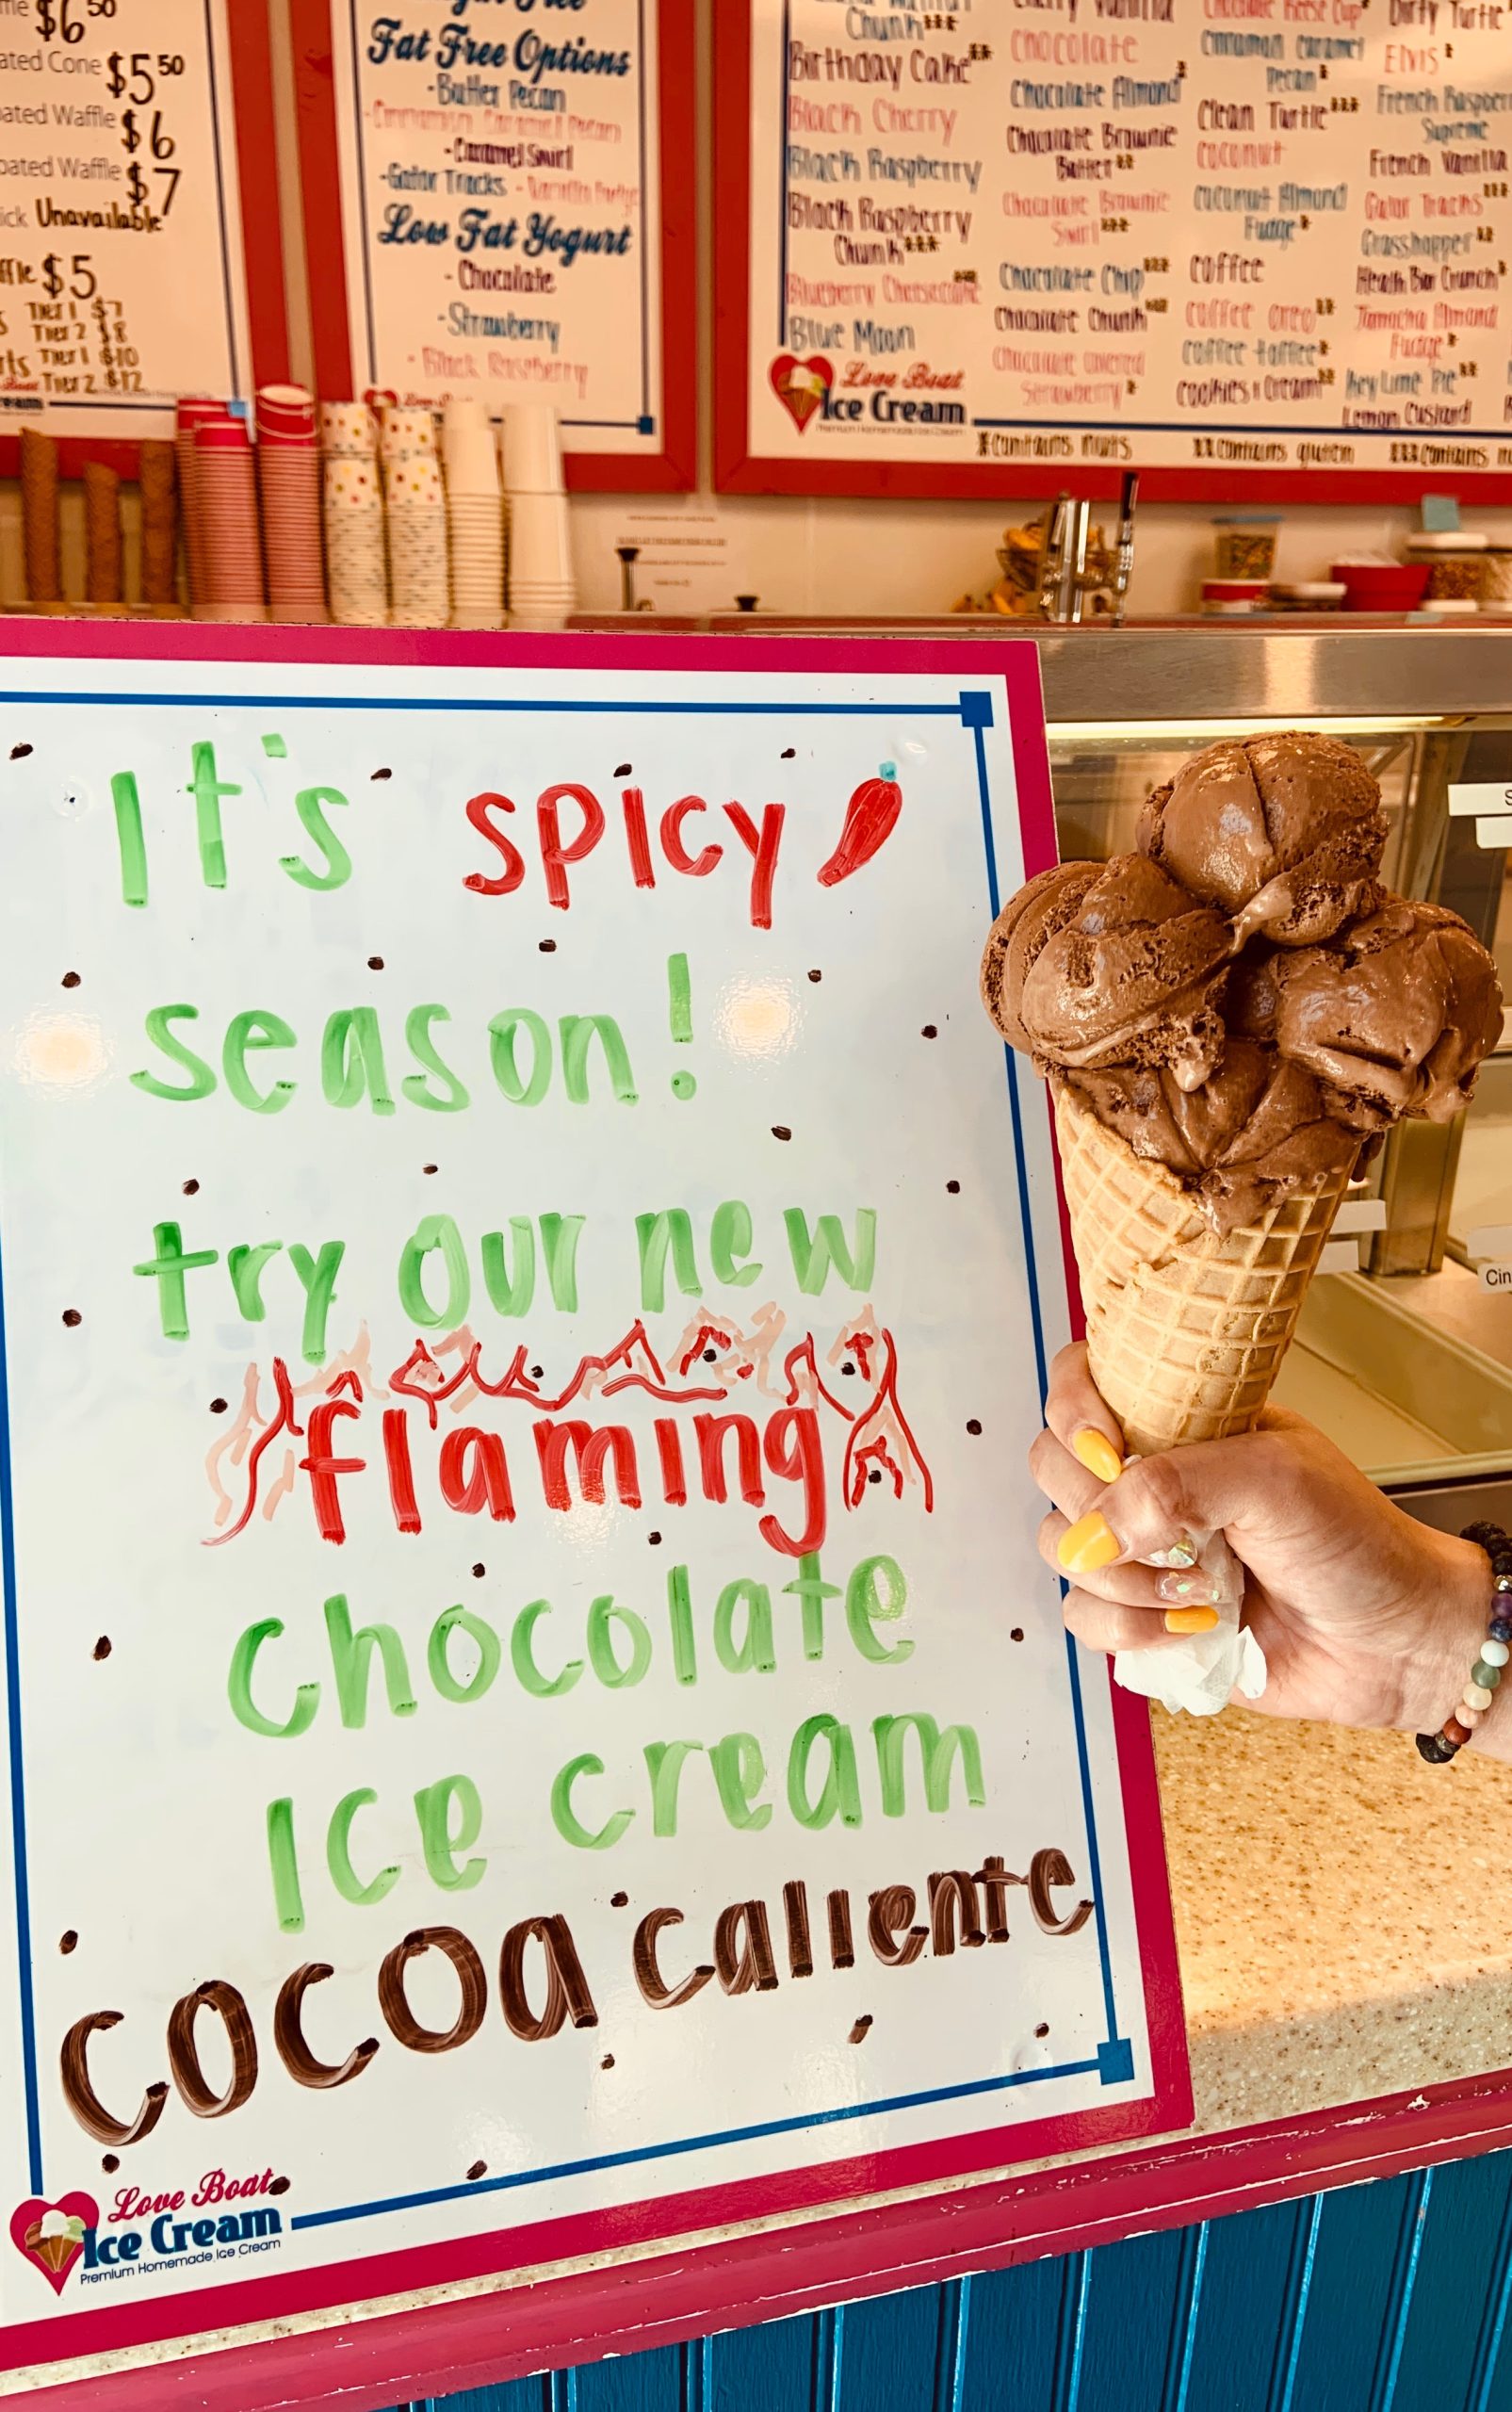 $6 50
Cone $5 50
Waffle $6
Waffle $7
Unavailable
$5
Tier 1 $7
Tier 2 $8
Tier 1 $10
Tier 2 $12
Fat Free Options
-Butter Pecan
-Cinnamon Caramel Pecan
-Caramel Swirl
-Gator Tracks -Vanilla Fudge
Low Fat Yogurt
- Chocolate
-Strawberry
- Black Raspberry
Chunk***
Birthday Cake**
Black Cherry
Black Raspberry
Black Raspberry
Chunk***
Blueberry Cheesecake
Blue Moon
Love Boat
Ice Cream
Chocolate
Chocolate Almond
Chocolate Brownie
Batter**
Chocolate Brownie
Swirl***
Chocolate Chip***
Chocolate Chunk
Chocolate Covered
Strawberry*
Cinnamon Caramel
Pecan*
Clean Turtle***
Coconut
Coconut Almond
Fudge*
Coffee
Coffee Oreo**
Coffee toffee*
Cookies n Cream**
Dirty Turtle
Elvis*
Supreme
French Vanilla
Gator Tracks***
Grasshopper**
Heath Bar Crunch*
Jamocha Almond
Fudge*
Key Lime Pie**
Lemon Custard
*Contains nuts
**Contains gluten
***Contains
It's spicy
season!
try our new
flaming
chocolate
Ice cream
COCOa caliente
Love Boat
Ice Cream
Premium Homemade Ice Cream
Cin